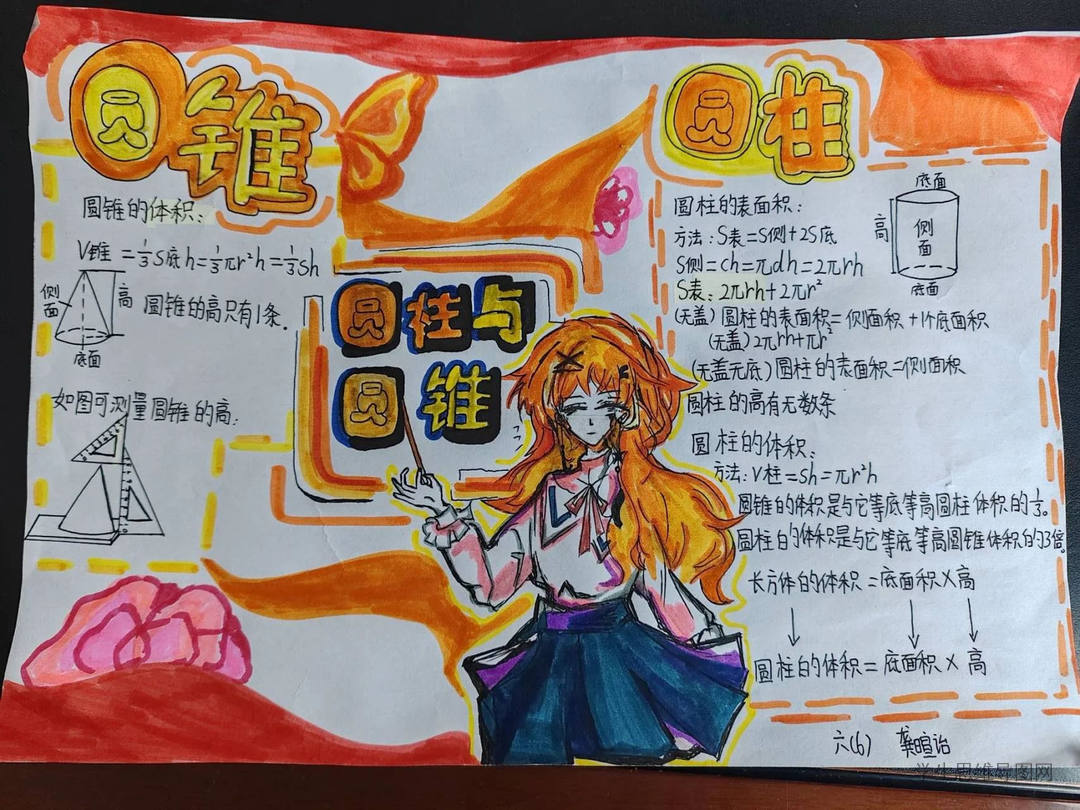 圆锥
圆锥的体积:
V锥=⅓S底h=⅓πr²h=⅓sh
侧面
高
底面
圆锥的高只有1条.
如图可测量圆锥的高:
圆柱与
圆锥
圆柱
圆柱的表面积:
方法:S表=S侧+2S底
S侧=ch=πdh=2πrh
S表:2πrh+2πr²
底面
高
侧面
底面
(无盖)圆柱的表面积=侧面积+1个底面积
(无盖)2πrh+πr²
(无盖无底)圆柱的表面积=侧面积
圆柱的高有无数条
圆柱的体积:
方法:V柱=sh=πr²h
圆锥的体积是与它等底等高圆柱体积的⅓。
圆柱的体积是与它等底等高圆锥体积的3倍.
长方体的体积=底面积×高
圆柱的体积=底面积×高
六(6) 龚暄诒
学生思维导图网